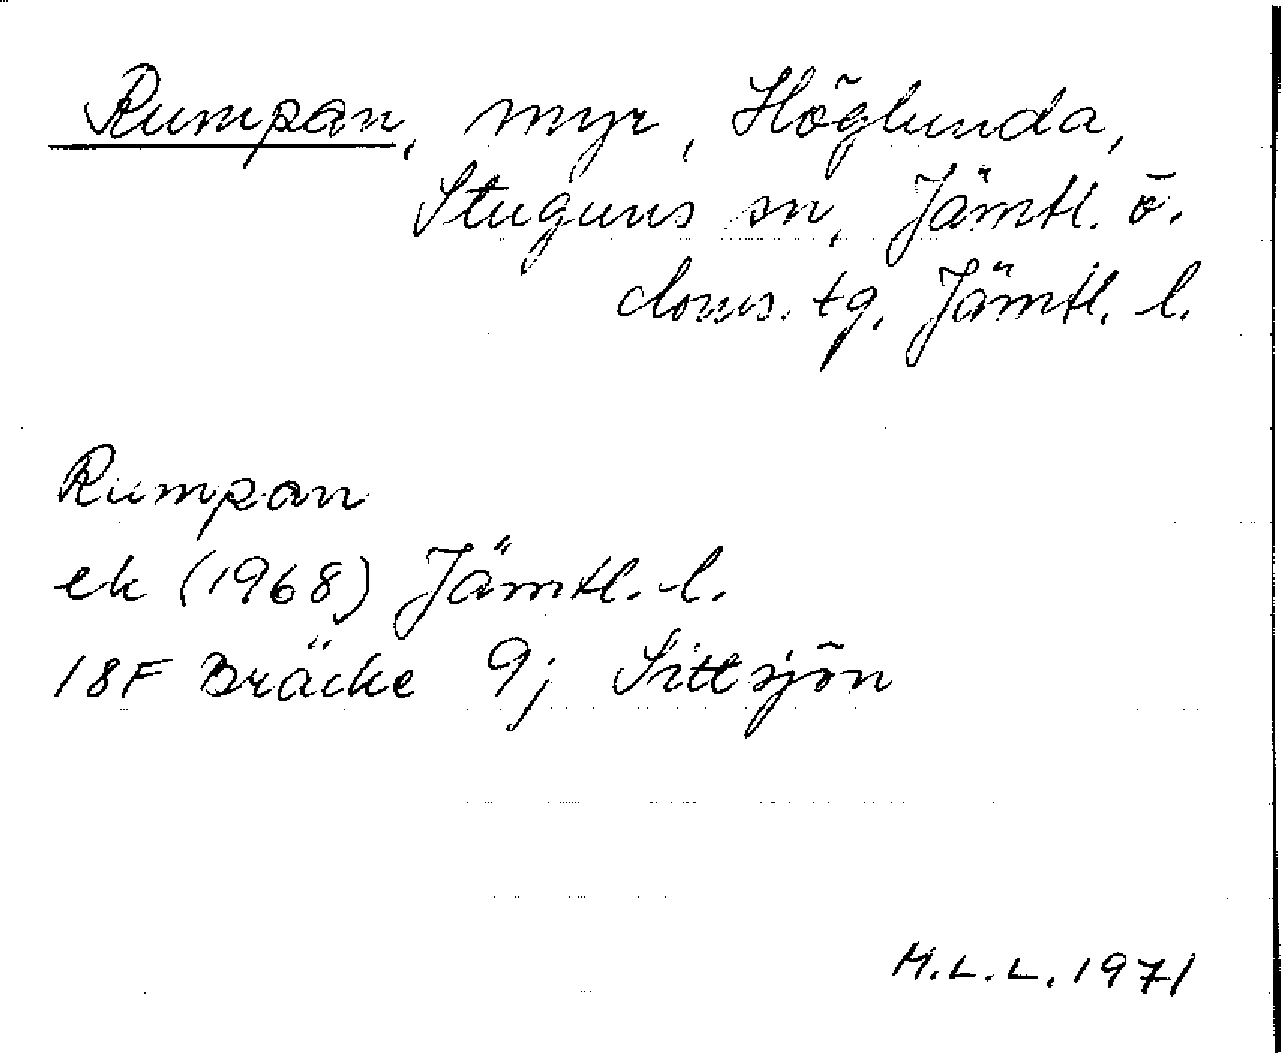 Rumpan, myr, Höglunda,
Stuguns sn, Jämtl. ö.
doms. tg, Jämtl. l.
Rumpan
ek (1968) Jämtl. l.
18F Bräcke 9j Sittsjön
M.L.L. 1971